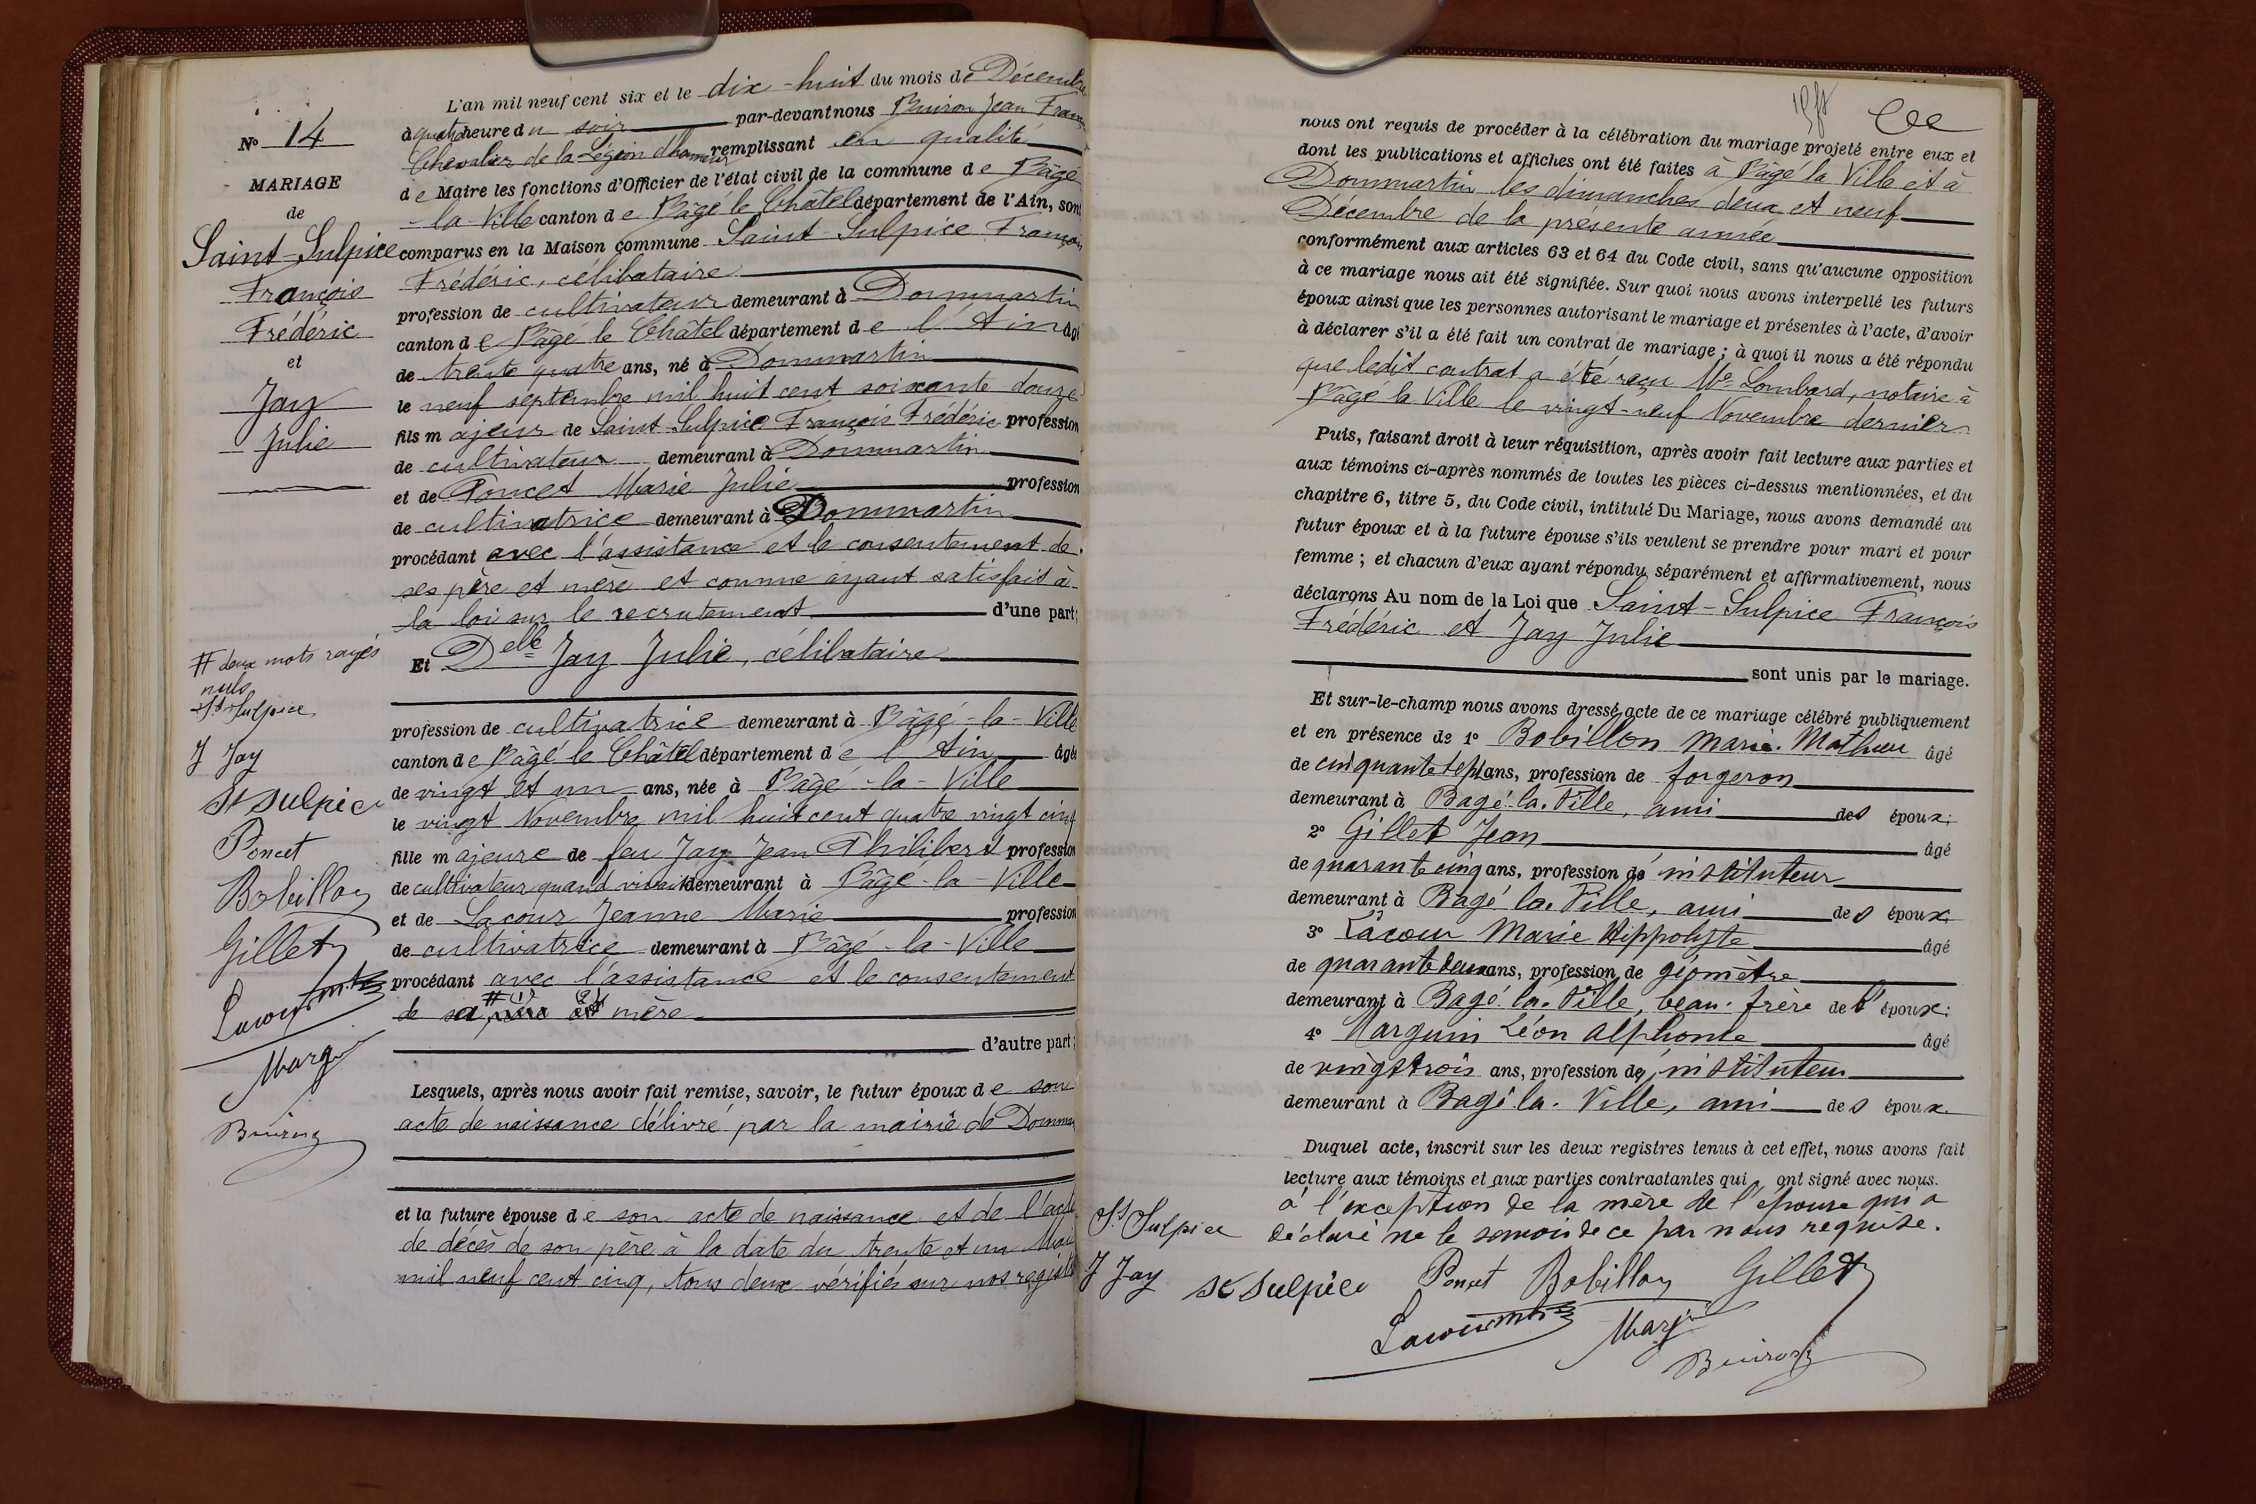 N° 14
MARIAGE
de
Saint-Sulpice
François
Frédéric
et
Jay
Julie
L'an mil neuf cent six et le dix-huit du mois de Décembre
à quatre heure du soir par-devant nous Buiron Jean
Chevalier de la Légion d'honneur remplissant en qualité
de Maire les fonctions d'Officier de l'état civil de la commune de Bâgé
-la-Ville canton de Bâgé le Châtel département de l'Ain, sont
comparus en la Maison commune Saint-Sulpice François
Frédéric, célibataire
profession de cultivateur demeurant à Dommartin
canton de Bâgé le Châtel département de l'Ain âgé
de trente quatre ans, né à Dommartin
le neuf septembre mil huit cent soixante douze
fils majeur de Saint-Sulpice François Frédéric profession
de cultivateur demeurant à Dommartin
et de Poncet Marie Julie profession
de cultivatrice demeurant à Dommartin
procédant avec l'assistance et le consentement de
ses père et mère et comme ayant satisfait à
la loi sur le recrutement d'une part;
Et Delle Jay Julie, célibataire
profession de cultivatrice demeurant à Bâgé-la-Ville
canton de Bâgé le Châtel département de l'Ain âgée
de vingt et un ans, née à Bâgé-la-Ville
le vingt Novembre mil huit cent quatre vingt cinq
fille majeure de feu Jay Jean Philibert profession
de cultivateur quand vivait demeurant à Bâgé-la-Ville
et de Lacour Jeanne Marie profession
de cultivatrice demeurant à Bâgé-la-Ville
procédant avec l'assistance et le consentement
de sa # (1) père (2) et mère
d'autre part;
Lesquels, après nous avoir fait remise, savoir, le futur époux de son
acte de naissance délivré par la mairie de Domma
et la future épouse de son acte de naissance et de l'acte
de décès de son père à la date du trente et un Mai
mil neuf cent cinq, tous deux vérifiés sur nos registres
# deux mots rayés
nuls
St Sulpice
J Jay
St Sulpice
Poncet
Bobillon
Gillet
Lacour
Margu
Buiron
nous ont requis de procéder à la célébration du mariage projeté entre eux et
dont les publications et affiches ont été faites à Bâgé la Ville et à
Dommartin les dimanches deux et neuf
Décembre de la présente année
conformément aux articles 63 et 64 du Code civil, sans qu'aucune opposition
à ce mariage nous ait été signifiée. Sur quoi nous avons interpellé les futurs
époux ainsi que les personnes autorisant le mariage et présentes à l'acte, d'avoir
à déclarer s'il a été fait un contrat de mariage; à quoi il nous a été répondu
que ledit contrat a été reçu Me Lombard, notaire à
Bâgé la Ville le vingt-neuf Novembre dernier
Puis, faisant droit à leur réquisition, après avoir fait lecture aux parties et
aux témoins ci-après nommés de toutes les pièces ci-dessus mentionnées, et du
chapitre 6, titre 5, du Code civil, intitulé Du Mariage, nous avons demandé au
futur époux et à la future épouse s'ils veulent se prendre pour mari et pour
femme; et chacun d'eux ayant répondu séparément et affirmativement, nous
déclarons Au nom de la Loi que Saint-Sulpice François
Frédéric et Jay Julie
sont unis par le mariage.
Et sur-le-champ nous avons dressé acte de ce mariage célébré publiquement
et en présence de 1° Bobillon Marie. Mathieu âgé
de cinquante sept ans, profession de forgeron
demeurant à Bagé-la-Ville, ami des époux;
2° Gillet Jean âgé
de quarante cinq ans, profession de instituteur
demeurant à Bagé la-Ville, ami des époux;
3° Lacour Marie Hippolyte âgé
de quarante deux ans, profession de géomètre
demeurant à Bagé-la-Ville, beau-frère de l'époux;
4° Marguin Léon Alphonse âgé
de vingt trois ans, profession de instituteur
demeurant à Bagé-la-Ville, ami des époux.
Duquel acte, inscrit sur les deux registres tenus à cet effet, nous avons fait
lecture aux témoins et aux parties contractantes qui ont signé avec nous.
à l'exception de la mère de l'épouse qui a
déclaré ne le savoir de ce par nous requise.
St Sulpice
J Jay St Sulpice Poncet Bobillon Gillet
Lacour Margu
Buiron